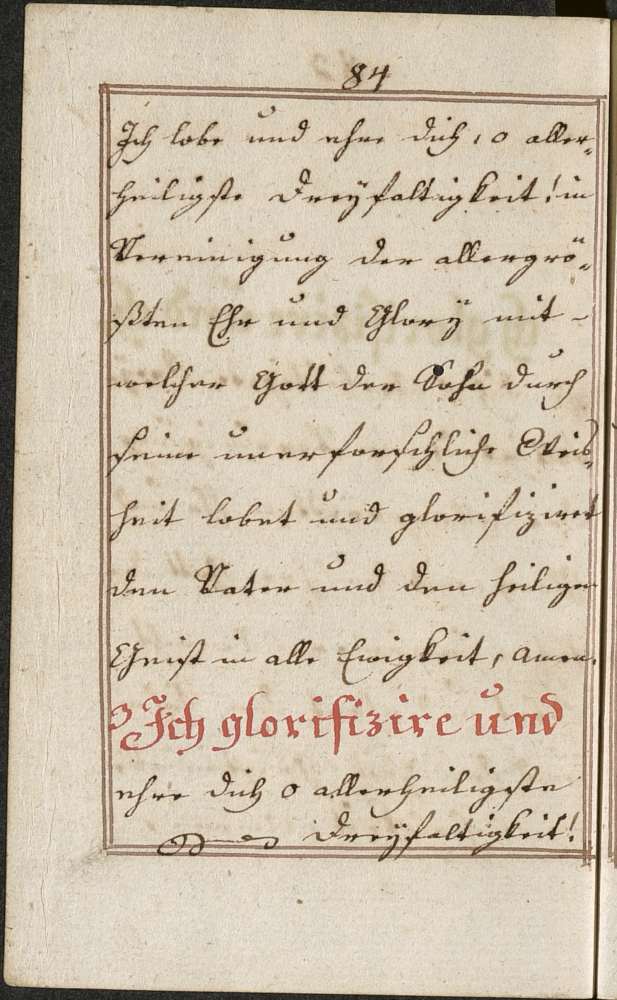 84
Ich lobe und ehre dich, o aller=
heiligste Dreyfaltigkeit! in
Vereinigung der allergrö=
ßten Ehr und Glory mit-
welcher Gott der Sohn durch
seine unerforschliche Weis=
heit lobet und glorifiziret
den Vater und den heiligen
Geist in alle Ewigkeit, amen.
Ich glorifizire und
ehre dich o allerheiligste
Dreyfaltigkeit!